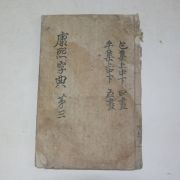 巳集上中下 四畫
午集上中下 五畫
康熙字典 第三